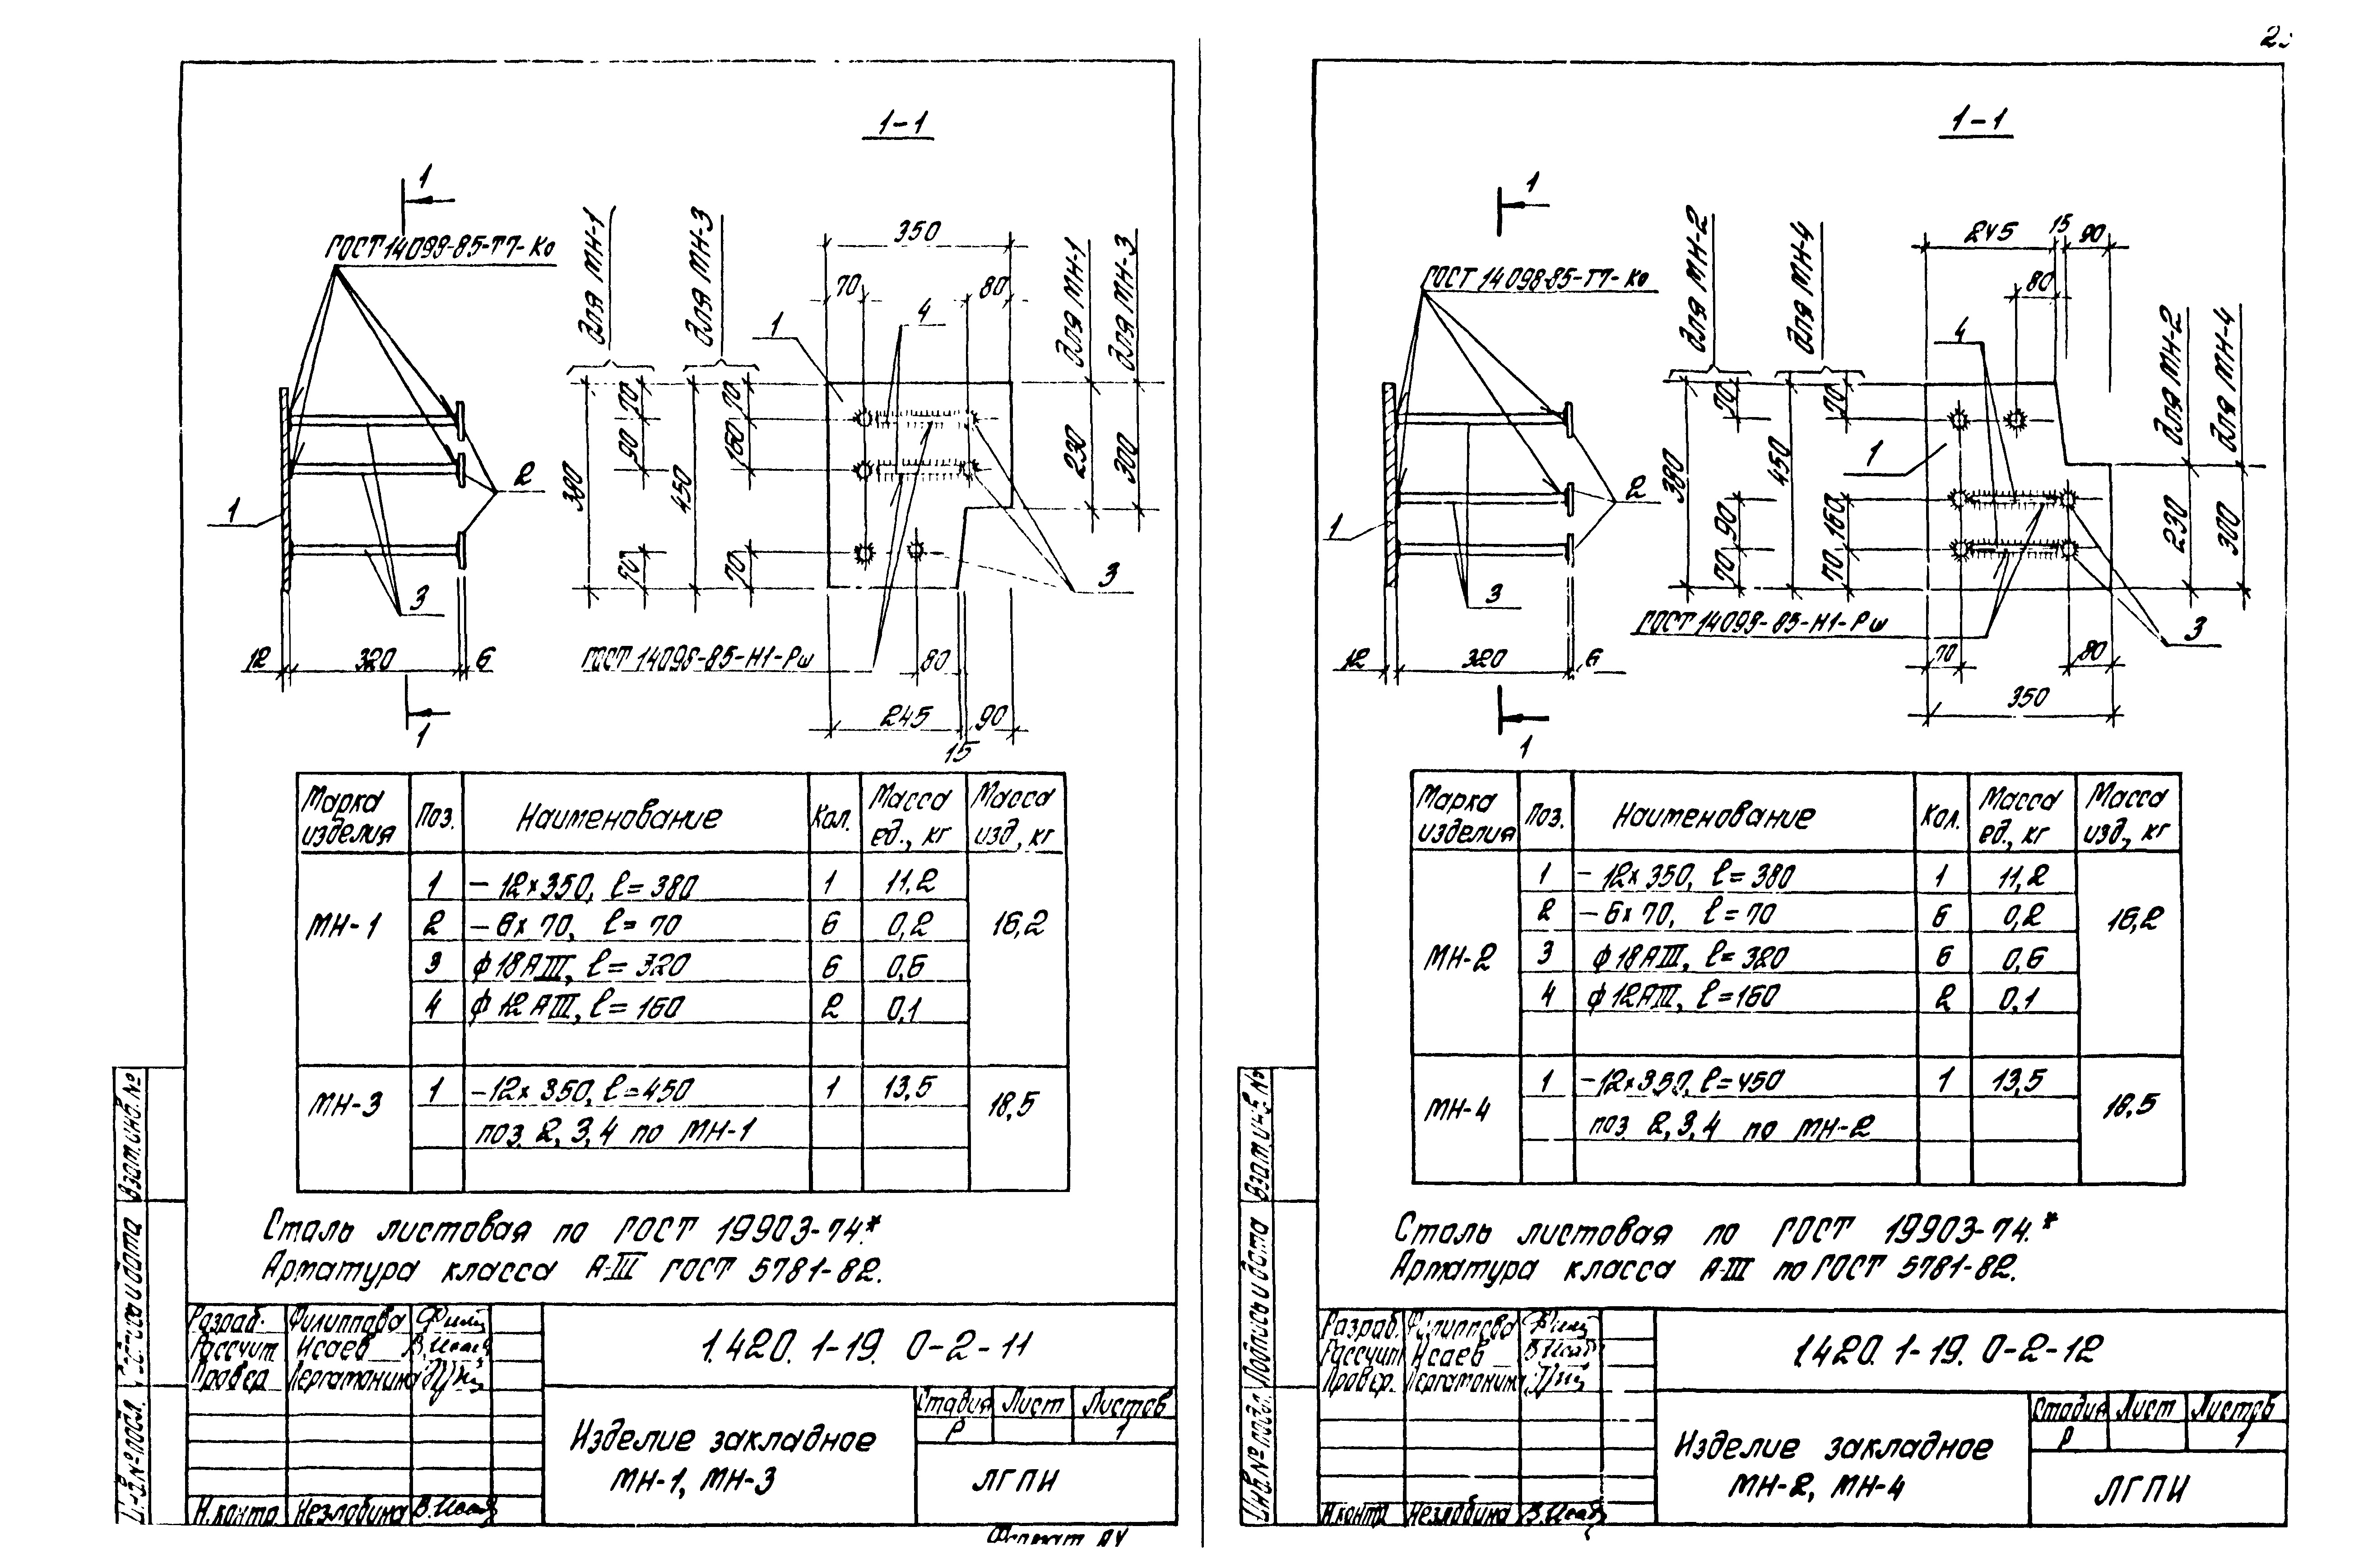 1-1
1
ГОСТ 14098-85-Т7-Ко
для МН-1
для МН-3
350
70
80
4
1
для МН-1
для МН-3
70
90
380
70
70
160
450
70
230
300
2
1
3
3
12
320
6
ГОСТ 14098-85-Н1-Рш
80
245
90
15
1
Марка изделия Поз. Наименование Кол. Масса ед., кг Масса изд., кг
МН-1 16,2
1 - 12×350, ℓ=380 1 11,2
2 - 6×70, ℓ=70 6 0,2
3 ϕ18АIII, ℓ=320 6 0,6
4 ϕ12АIII, ℓ=160 2 0,1
МН-3 18,5
1 -12×350, ℓ=450 1 13,5
поз. 2, 3, 4 по МН-1
Сталь листовая по ГОСТ 19903-74.*
Арматура класса А-III ГОСТ 5781-82.
Взам. инв. №
Подпись и дата
Инв. № подл.
Разраб. Филиппова
Рассчит. Исаев
Провер.
Н.контр. Незлобина
1.420.1-19. 0-2-11
Изделие закладное
МН-1, МН-3
Стадия Лист Листов
Р 1
ЛГПИ
Формат А4
1-1
1
ГОСТ 14098-85-Т7-Ко
для МН-2
для МН-4
245
15
90
80
4
для МН-2
для МН-4
70
380
90
70
70
450
160
70
1
230
300
2
1
3
3
ГОСТ 14098-85-Н1-Рш
12
320
6
70
80
350
1
Марка изделия Поз. Наименование Кол. Масса ед., кг Масса изд., кг
МН-2 16,2
1 - 12×350, ℓ=380 1 11,2
2 - 6×70, ℓ=70 6 0,2
3 ϕ18АIII, ℓ=320 6 0,6
4 ϕ12АIII, ℓ=160 2 0,1
МН-4 18,5
1 -12×350, ℓ=450 1 13,5
поз. 2, 3, 4 по МН-2
Сталь листовая по ГОСТ 19903-74.*
Арматура класса А-III по ГОСТ 5781-82.
Взам. инв. №
Подпись и дата
Инв. № подл.
Разраб. Филиппова
Рассчит. Исаев
Провер.
Н.контр. Незлобина
1.420.1-19. 0-2-12
Изделие закладное
МН-2, МН-4
Стадия Лист Листов
Р 1
ЛГПИ